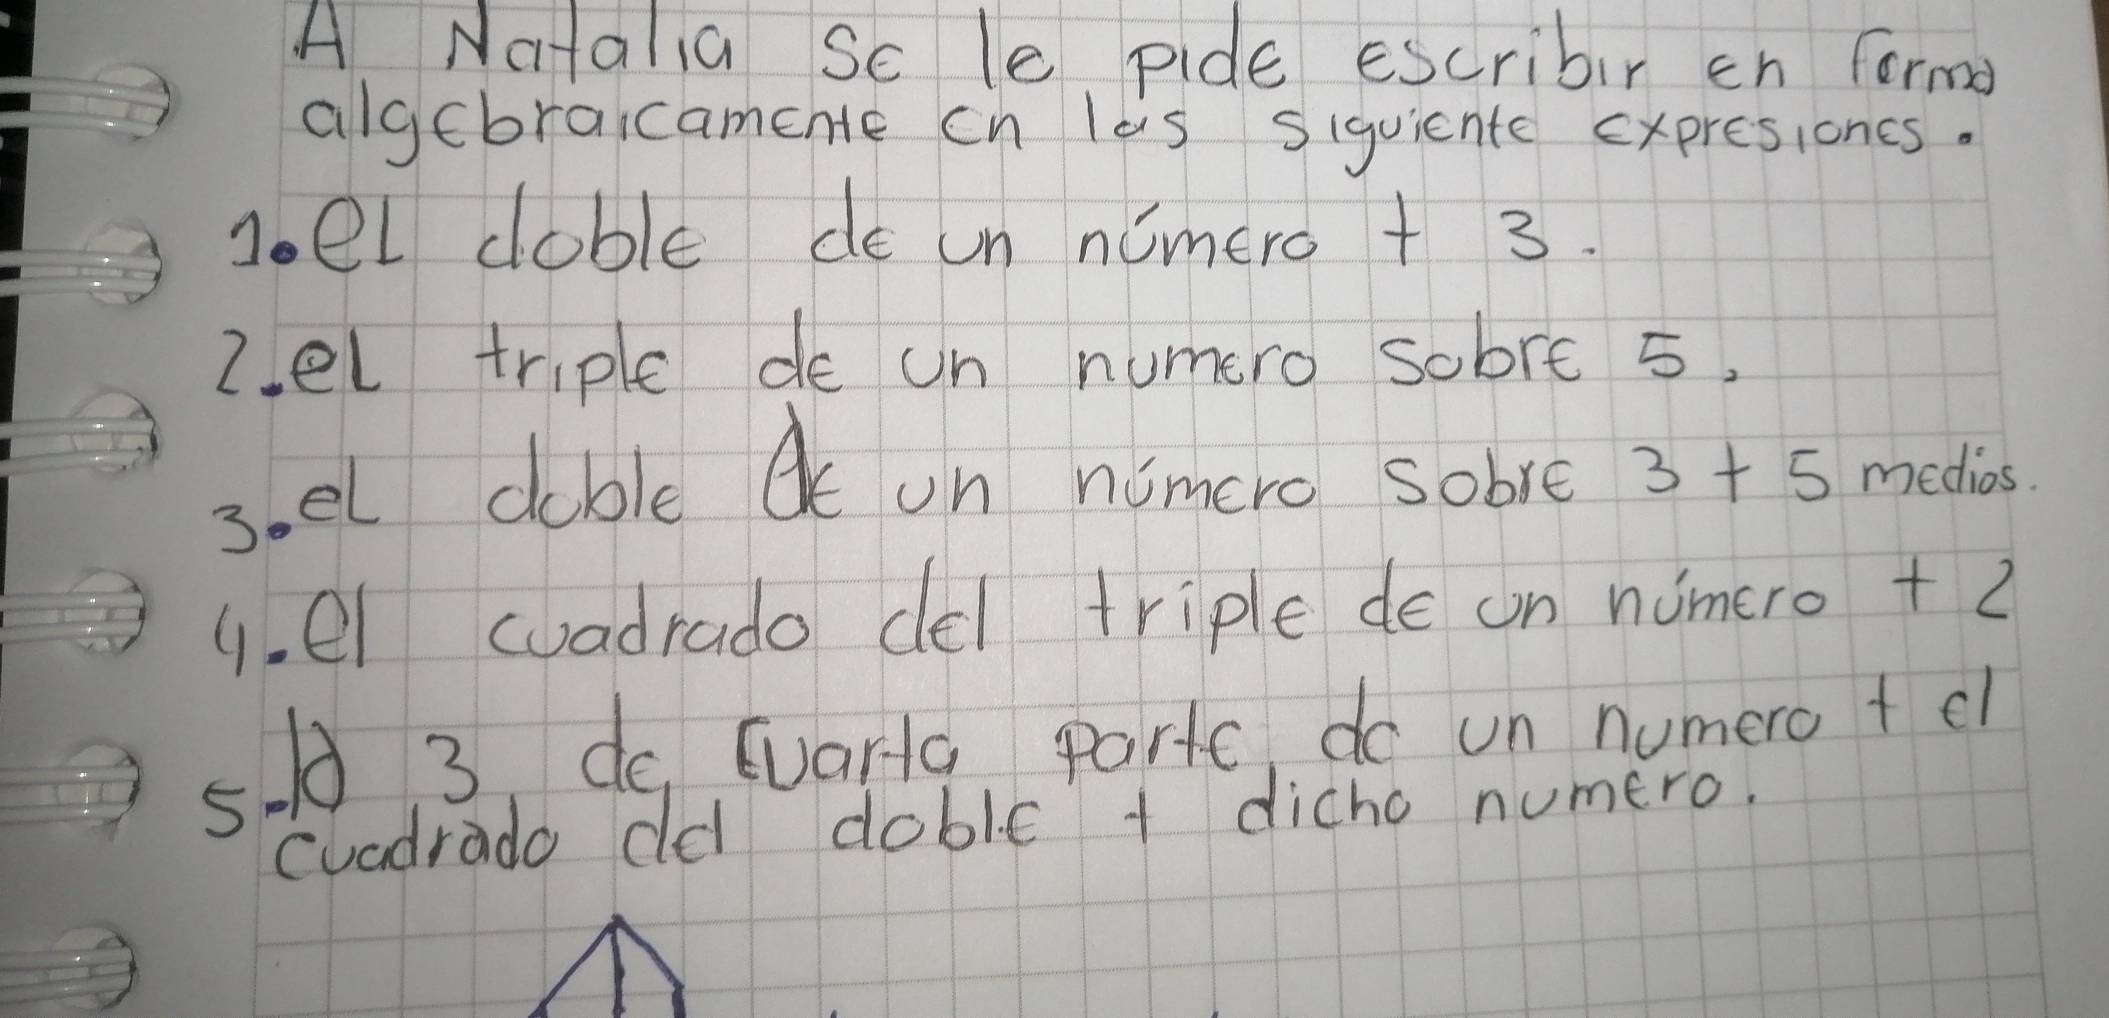 A Natalia se le pide escribir en forma
algebraicamente en las siguiente expresiones.
1. el doble de un número + 3.
2. el triple de un numero sobre 5,
3. el doble de un número sobre 3 + 5 medios.
4. el cuadrado del triple de un número + 2
5. la 3 de cuarta parte de un numero + el
cuadrado del doble + dicho numero.